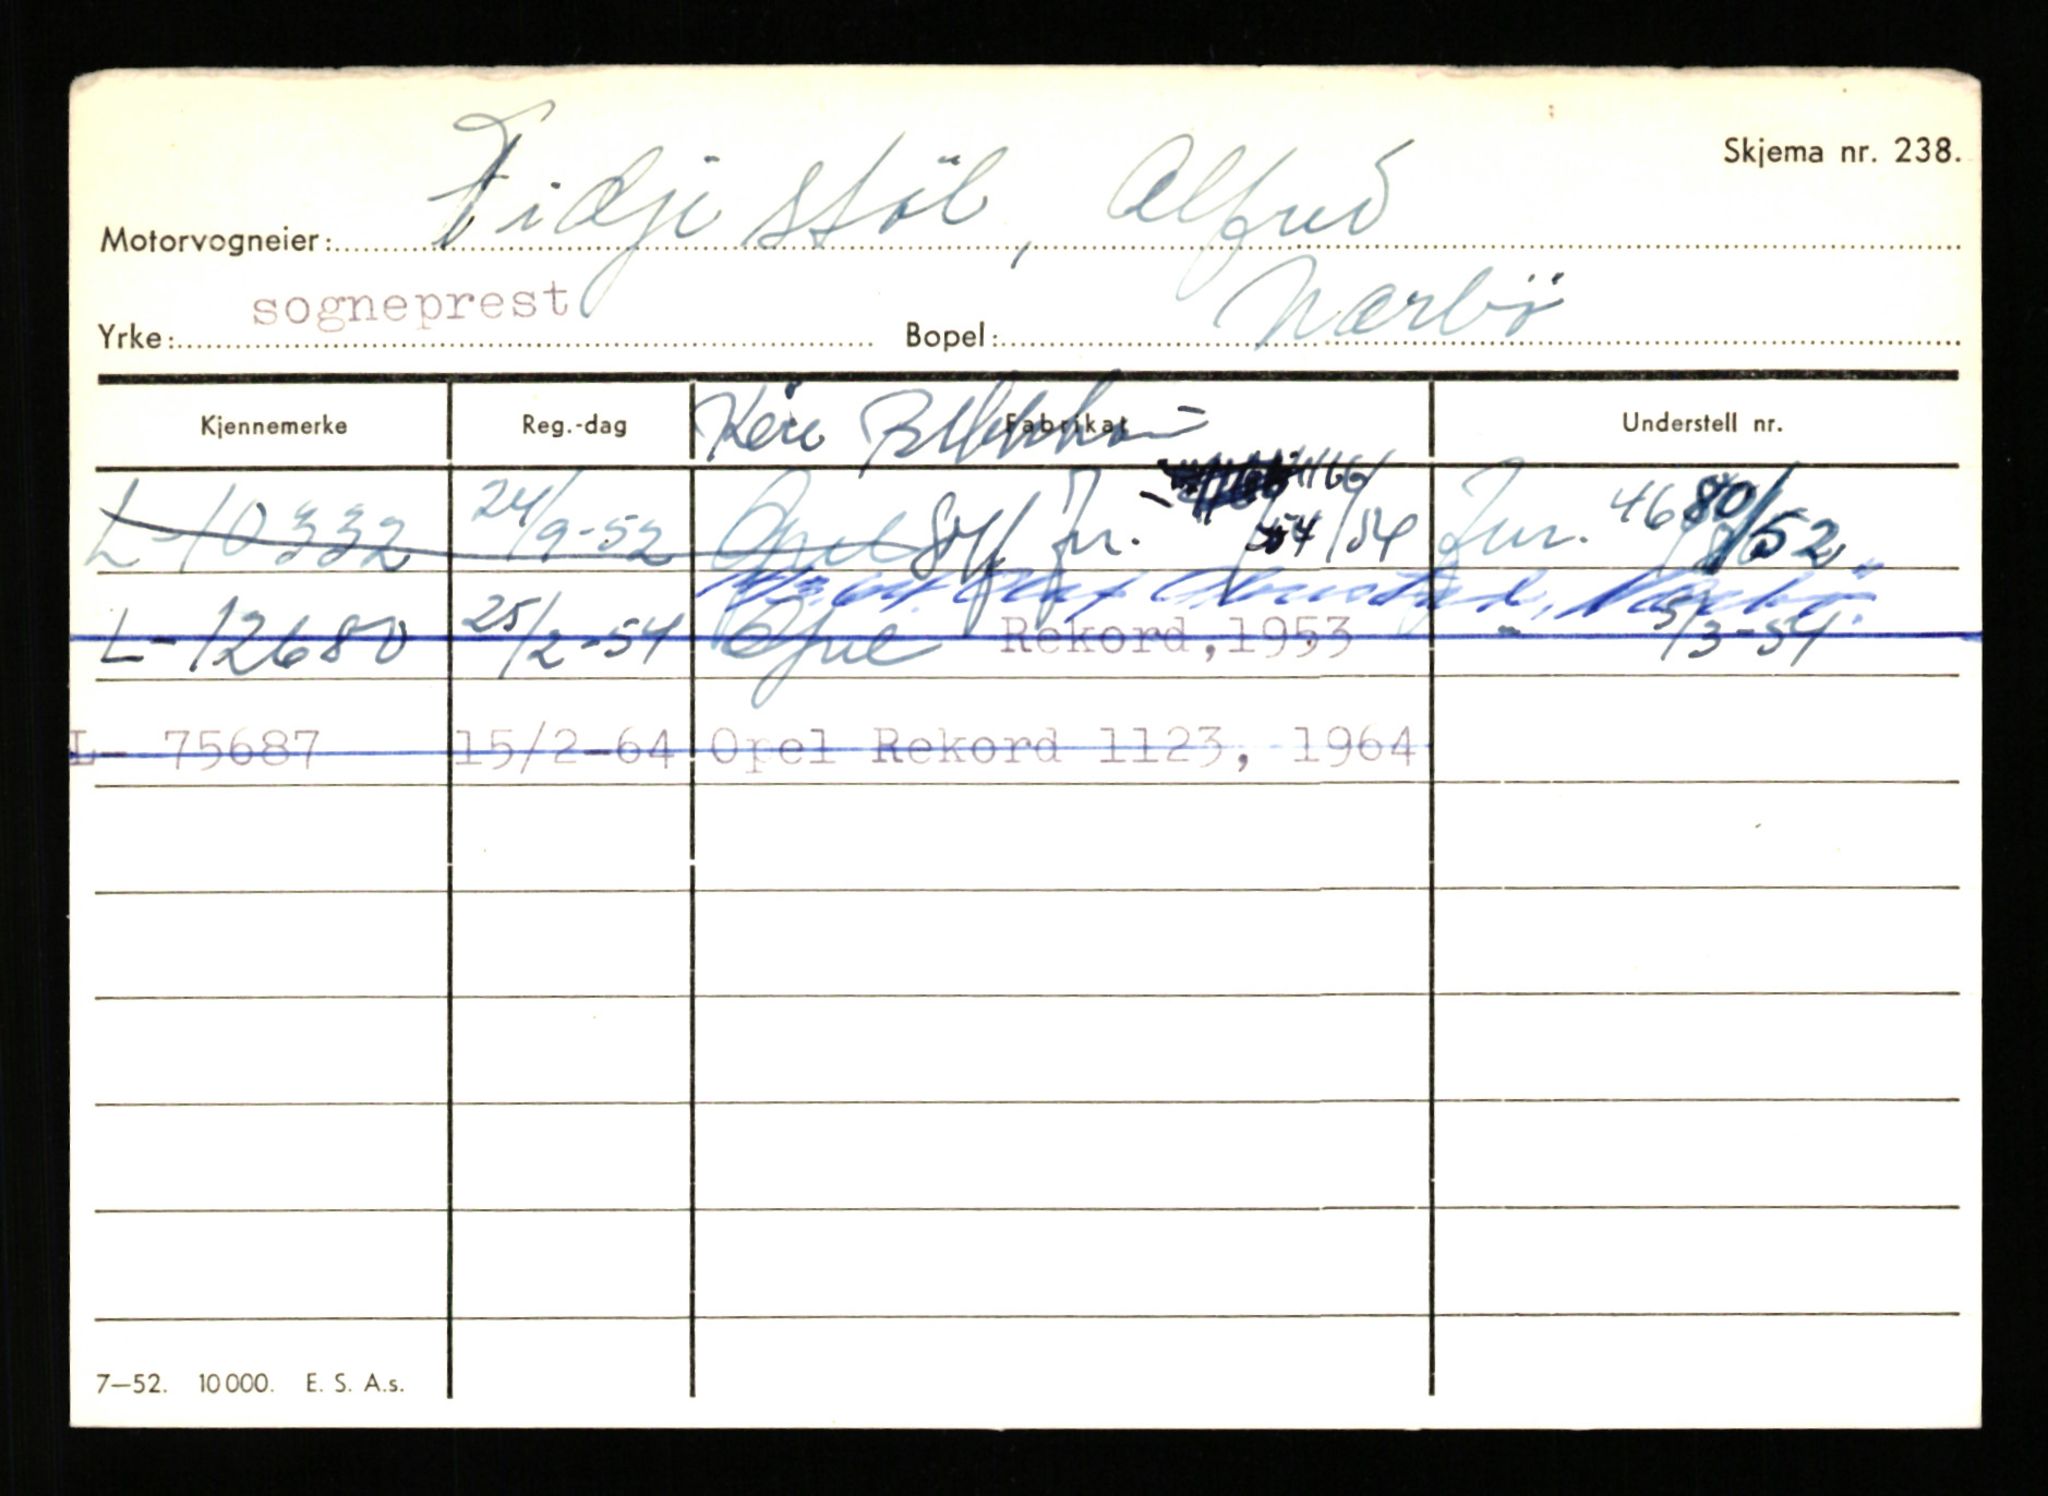 Skjema nr. 238.
Motorvogneier: Fidjestöl, Alfred
Yrke: sogneprest Bopel: Nærbö
Kjennemerke Reg.-dag Fabrikat Understell nr.
L-10332 24/9-52 Opel 54/54 4680/52
L-12680 25/2-54 Opel Rekord,1953 5/3-54
L- 75687 15/2-64 Opel Rekord 1123, 1964
7-52. 10000. E. S. A.s.